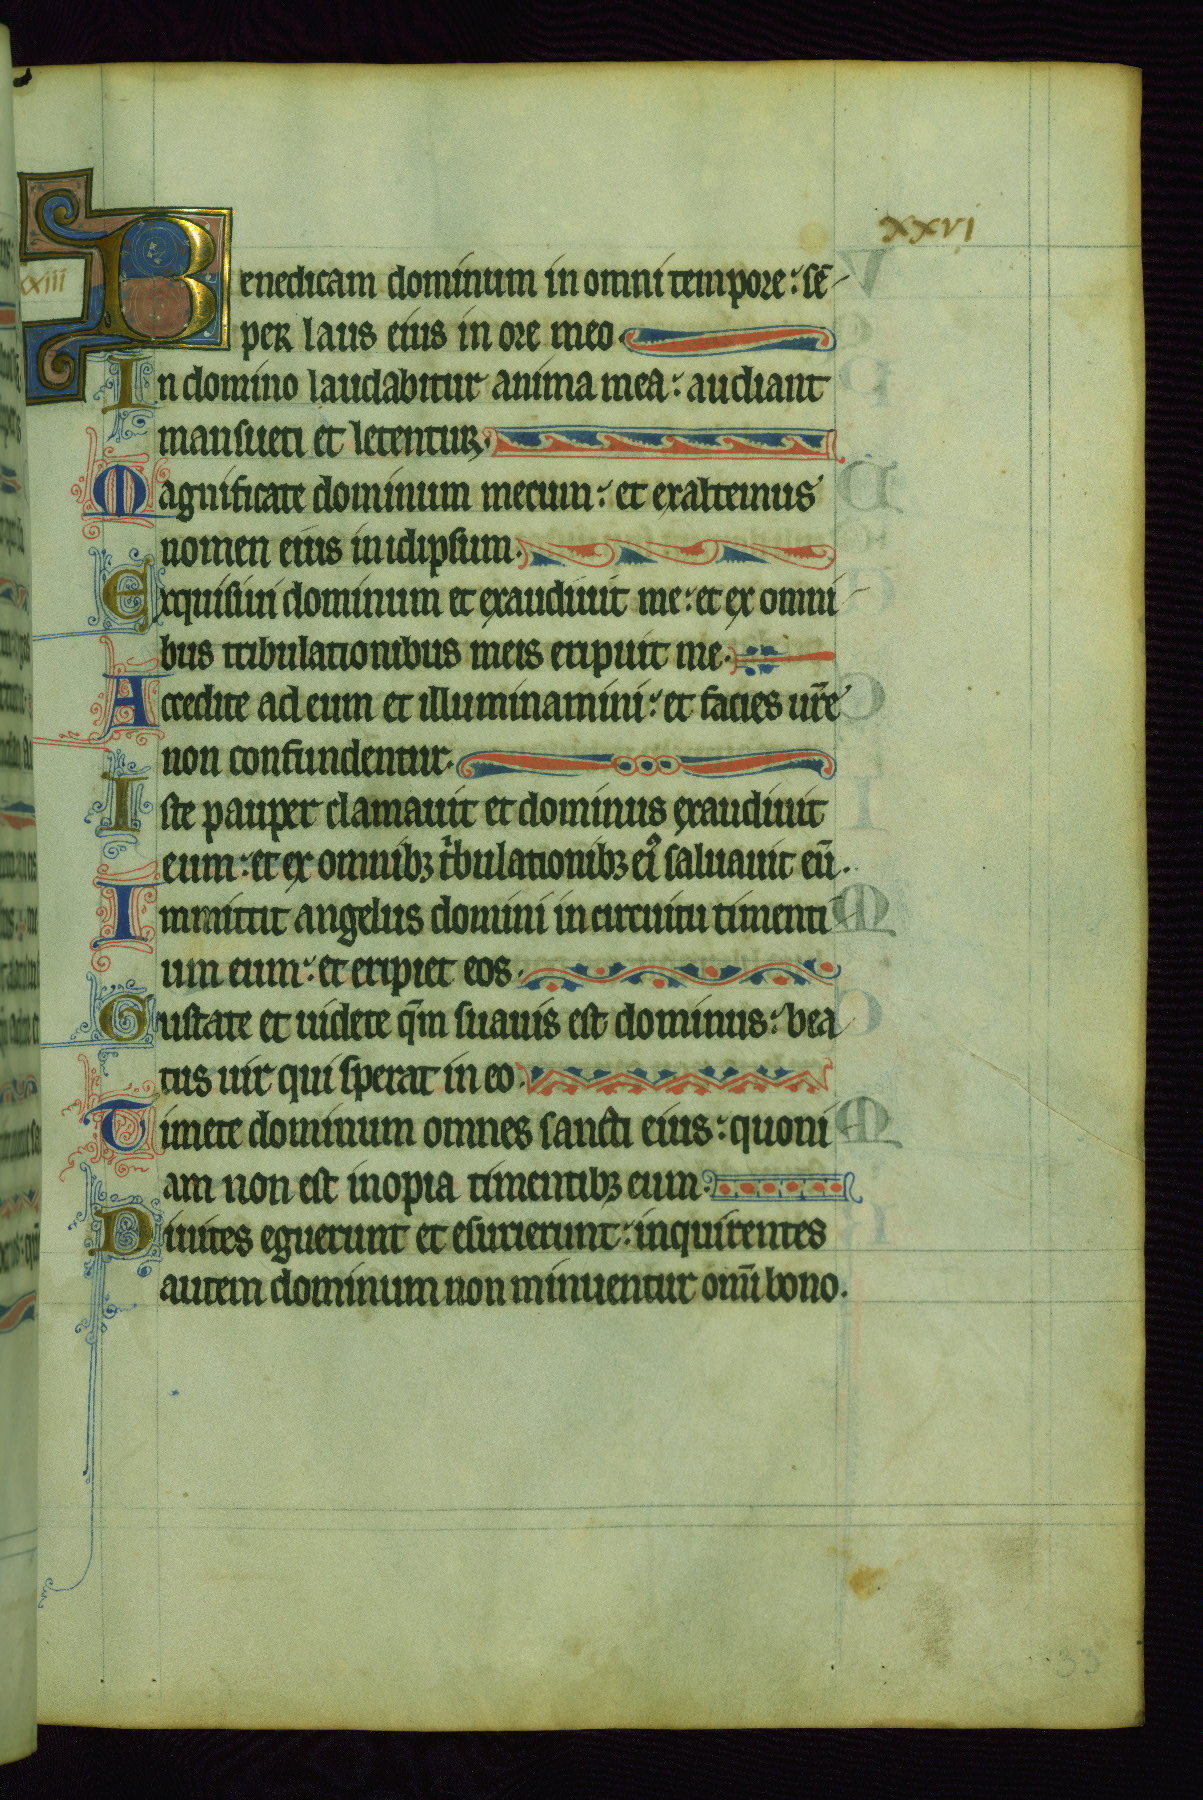 xxvi
xxiii
Benedicam dominum in omni tempore: sē-
per laus eius in ore meo.
In domino laudabitur anima mea: audiant
mansueti et letentur.
Magnificate dominum mecum: et exaltemus
nomen eius in idipsum.
Exquisiui dominum et exaudiuit me: et ex omni-
bus tribulationibus meis eripuit me.
Accedite ad eum et illuminamini: et facies ur̄e
non confundentur.
Iste pauper clamauit et dominus exaudiuit
eum: et ex omnibꝫ tⁱbulationibꝫ eiꝰ saluauit eū.
Immittit angelus domini in circuitu timenti
um eum: et eripiet eos.
Gustate et uidete qm̄ suauis est dominus: bea
tus uir qui sperat in eo.
Timete dominum omnes sancti eius: quoni
am non est inopia timentibꝫ eum.
Diuites eguerunt et esurierunt: inquirentes
autem dominum non minuentur omī bono.
33